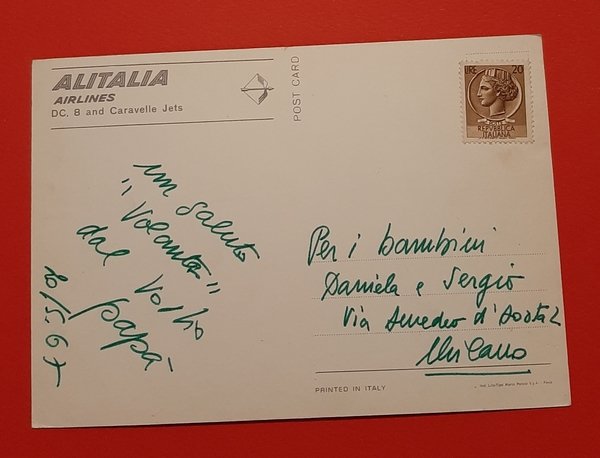 ALITALIA
AIRLINES
DC. 8 and Caravelle Jets
POST CARD
LIRE 20
REPVBBLICA
ITALIANA
un saluto
"Volante"
dal vostro
papà
10/5.67
Per i bambini
Daniela e Sergio
Via Amedeo d'Aosta 2
Milano
PRINTED IN ITALY